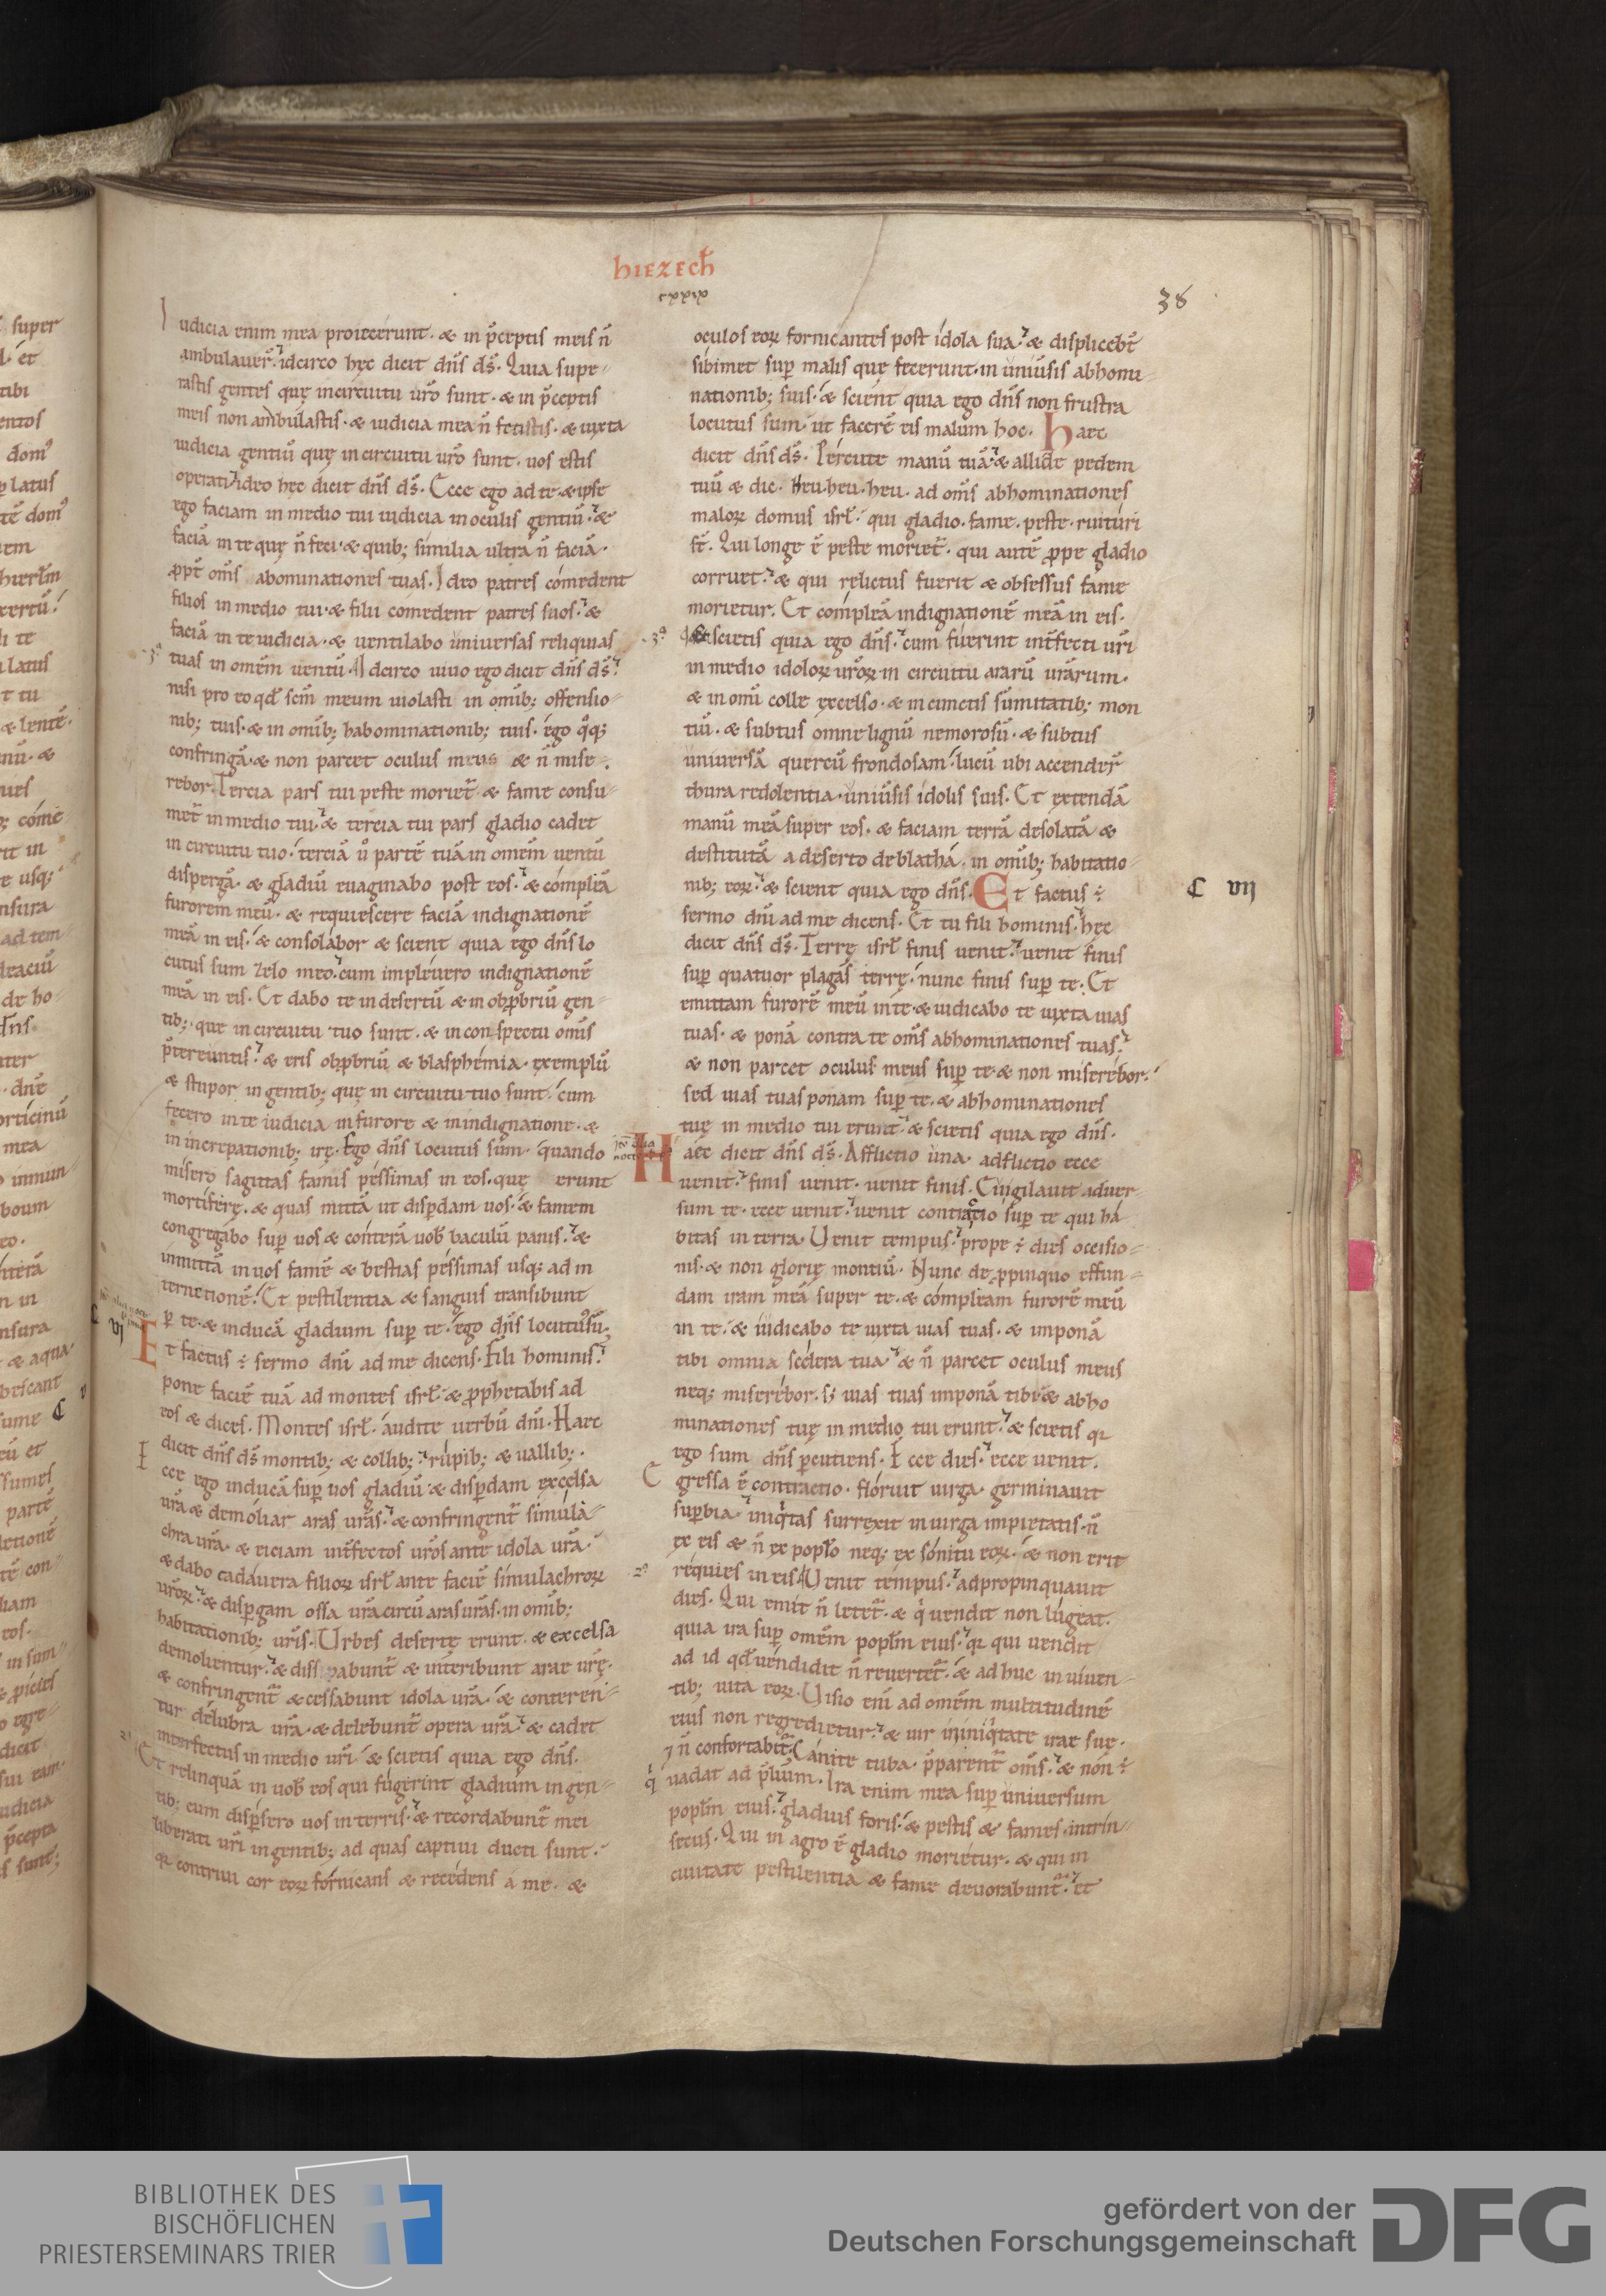 hiezecħ
cxxix
38
Iudicia enim mea proiecerunt. & in p̄ceptis meis n̄
ambulauer̄. idcirco hęc dicit dn̄s ds̄. Quia supe-
rastis gentes quę in circuitu ur̄o sunt. & in p̄ceptis
meis non ambulastis. & iudicia mea n̄ fecistis. & iuxta
iudicia gentiū quę in circuitu ur̄o sunt. uos estis
operati. ideo hęc dicit dn̄s ds̄. Ecce ego ad te. & ipse
ego faciam in medio tui iudicia in oculis gentiū. &
faciā in te quę n̄ feci. & quib; similia ultra n̄ faciā.
ꝓpt̄ om̄s abominationes tuas. Ideo patres comedent
filios in medio tui. & filii comedent patres suos. &
faciā in te iudicia. & uentilabo uniuersas reliquias
tuas in omēm uentū. Idcirco uiuo ego dicit dn̄s ds̄.
nisi pro eo qd̄ sc̄m meum uiolasti in omīb; offensio-
nib; tuis. & in omīb; habominationib; tuis. ego q̊q;
confringā. & non parcet oculus meus & n̄ mise-
rebor. Tercia pars tui peste moriet̄. & fame consu-
met̄ in medio tui. & tercia tui pars gladio cadet
in circuitu tuo. terciā ů partē tuā in omēm uentū
dispergā. & gladiū euaginabo post eos. & complēā
furorem meū. & requiescere faciā indignationē
meā in eis. & consolabor & scient quia ego dn̄s lo
cutus sum zelo meo. cum impleuero indignationē
meā in eis. Et dabo te in desertū & in obꝓbriū gen-
tib;. que in circuitu tuo sunt. & in conspectu om̄s
p̄tereuntis. & eris obꝓbriū & blasphemia. exemplū
& stupor in gentib; quę in circuitu tuo sunt. cum
fecero in te iudicia in furore & in indignatione. &
in increpationib; irę. Ego dn̄s locutus sum. quando
misero sagittas famis pessimas in eos. quę erunt
mortiferę. & quas mittā ut disꝑdam uos. & famem
congregabo suꝑ uos & conterā uob̄ baculū panis. &
inmittā in uos famē & bestias pessimas usq; ad in
ternetionē. Et pestilentia & sanguis transibunt
ꝑ te. & inducā gladium suꝑ te. ego dn̄s locutus sū.
C vi
Et factus ē sermo dn̄i ad me dicens. Fili hominis.
pone faciē tuā ad montes isrl̄. & ꝓphetabis ad
eos & dices. Montes isrl̄. audite uerbū dn̄i. Haec
dicit dn̄s ds̄ montib; & collib;. rupib; & uallib;.
Ecce ego inducā suꝑ uos gladiū & disꝑdam excelsa
ur̄a & demoliar aras ur̄as. & confringent̄ simula-
chra ur̄a. & eiciam int̄fectos ur̄os ante idola ur̄a.
& dabo cadauera filioꝝ isrl̄ ante faciē simulachroꝝ
ur̄oꝝ. & disꝑgam ossa ur̄a circū aras ur̄as. in omīb;
habitationib; ur̄is. Urbes desertę erunt. & excelsa
demolientur. & dissipabunt̄ & interibunt arae ur̄ę.
& confringent̄ & cessabunt idola ur̄a. & conteren-
tur delubra ur̄a. & delebunt̄ opera ur̄a. & cadet
interfectus in medio ur̄i. & scietis quia ego dn̄s.
Et relinquā in uob̄ eos qui fugerint gladium in gen-
tib; cum disꝑsero uos in terris. & recordabunt̄ mei
liberati ur̄i in gentib; ad quas captiui ducti sunt.
qꝛ contriui cor eoꝝ fornicans & recedens a me. &
oculos eoꝝ fornicantes post idola sua. & displicebt̄
sibimet suꝑ malis quę fecerunt. in uniūsis abhomi-
nationib; suis. & scient quia ego dn̄s non frustra
locutus sum. ut facerē eis malum hoc. Haec
dicit dn̄s ds̄. Percute manū tuā. & allide pedem
tuū & dic. Heu. heu. heu. ad om̄s abhominationes
maloꝝ domus isrl̄. qui gladio. fame. peste. ruituri
st̄. Qui longe ē peste moriet̄. qui autē ꝓpe gladio
corruet. & qui relictus fuerit & obsessus fame
morietur. Et compleā indignationē meā in eis.
& scietis quia ego dn̄s. cum fuerint int̄fecti ur̄i
in medio idoloꝝ ur̄oꝝ in circuitu ararū ur̄arum.
& in omī colle excelso. & in cunctis sūmitatib; mon
tiū. & subtus omne lignū nemorosū. & subtus
uniuersā quercū frondosam. lucū ubi accender̄
thura redolentia. uniūsis idolis suis. Et extendā
manū meā super eos. & faciam terrā desolatā &
destitutā a deserto deblathā. in omīb; habitatio-
nib; eoꝝ. & scient quia ego dn̄s. Et factus ē
C vii
sermo dn̄i ad me dicens. Et tu fili hominis. hęc
dicit dn̄s ds̄. Terrę isrl̄ finis uenit. uenit finis
suꝑ quatuor plagas terrę. nunc finis suꝑ te. Et
emittam furorē meū in te. & iudicabo te iuxta uias
tuas. & ponā contra te om̄s abhominationes tuas.
& non parcet oculus meus suꝑ te. & non miserebor.
sed uias tuas ponam suꝑ te. & abhominationes
tuę in medio tui erunt. & scietis quia ego dn̄s.
Haec dicit dn̄s ds̄. Afflictio una. adflictio ecce
uenit. finis uenit. uenit finis. Euigilauit aduer-
sum te. ecce uenit. uenit contractio suꝑ te qui ha
bitas in terra. Uenit tempus. prope ē dies occisio-
nis. & non glorię montiū. Nunc de ꝓpinquo effun-
dam iram meā super te. & compleam furorē meū
in te. & iudicabo te iuxta uias tuas. & imponā
tibi omnia scelera tua. & n̄ parcet oculus meus
neq; miserebor. s; uias tuas imponā tibi. & abho
minationes tuę in medio tui erunt. & scietis qꝛ
ego sum dn̄s ꝑcutiens. Ecce dies. ecce uenit.
Egressa ē contractio. floruit uirga. germinauit
suꝑbia. iniq̇tas surrexit in uirga impietatis. n̄
ex eis & n̄ ex popl̄o neq; ex sonitu eoꝝ. & non erit
requies in eis. Uenit tempus. adpropinquauit
dies. Qui emit n̄ letet̄. & q̇ uendit non lugeat.
quia ira suꝑ omēm popl̄m eius. qꝛ qui uendit
ad id qd̄ uendidit n̄ reuertet̄. & adhuc in uiuen-
tib; uita eoꝝ. Uisio enī ad omēm multitudinē
eius non regredietur. & uir in iniq̇tate uitae suę.
⁊ n̄ confortabit̄. Canite tuba. p̄parent̄ om̄s. & non ē
q̇ uadat ad p̄lium. Ira enim mea suꝑ uniuersum
popl̄m eius. gladius foris. & pestis & fames. intrin-
secus. Qui in agro ē gladio morietur. & qui in
ciuitate pestilentia & fame deuorabunt̄. et
BIBLIOTHEK DES
BISCHÖFLICHEN
PRIESTERSEMINARS TRIER
gefördert von der
Deutschen Forschungsgemeinschaft
DFG